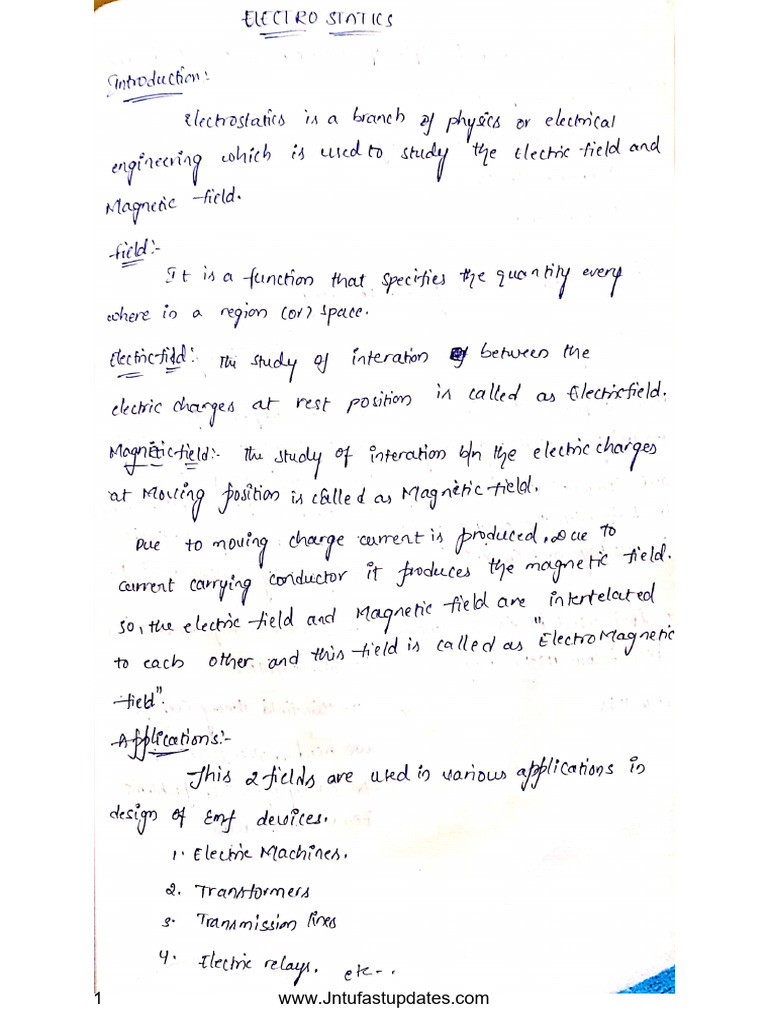 ELECTRO STATICS
Introduction:
Electrostatics is a branch of physics or electrical
engineering which is used to study the Electric field and
Magnetic field.
field:-
It is a function that specifies the quantity every
where in a region (or) space.
Electric field: The study of interation between the
electric charges at rest position is called as Electricfield.
Magnetic field:- The study of interation b/n the electric charges
at Moving position is called as Magnetic field.
Due to moving charge current is produced, Due to
current carrying conductor it produces the magnetic field.
so, the electric field and Magnetic field are interrelated
to each other and this field is called as "Electro Magnetic
field".
Applications:-
This 2 fields are used in various applications in
design of Emf devices.
1. Electric Machines.
2. Transformers
3. Transmission lines
4. Electric relays. etc...
1 www.Jntufastupdates.com